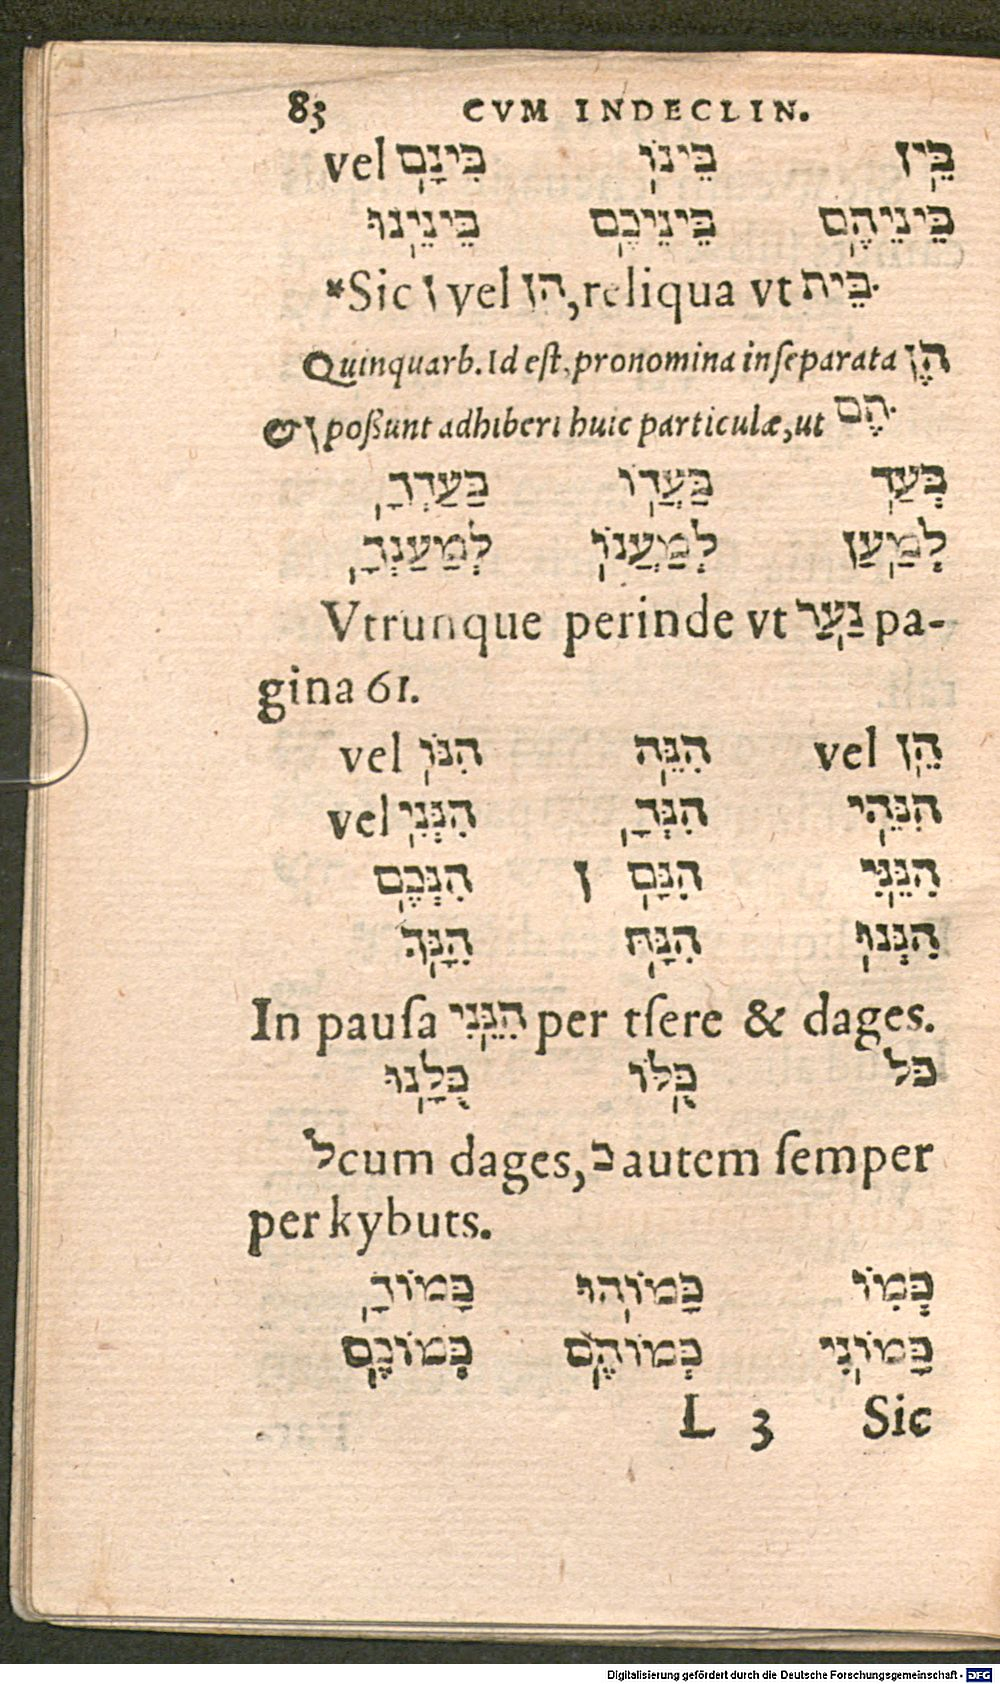 83 CVM INDECLIN.
בֵּין בֵּינוֹ בֵּינָם vel
בֵּינֵיהֶם בֵּינֵיכֶם בֵּינֵינוּ
*Sic ן vel הן, reliqua vt בֵּית.
Quinquarb. Id eſt, pronomina inſeparata הֶן
& ן poßunt adhiberi huic particulæ, ut הֶם.
בְּעַד בַּעֲדוֹ בַּעַדְךָ
לְמַעַן לְמַעֲנוֹ לְמַעַנְךָ
Vtrunque perinde vt נַעַר pa-
gina 61.
הֵן vel הִנֵּה הִנּוֹ vel
הִנֵּהִי הִנְּךָ הִנְּנִי vel
הִנֵּנִּי הִנָּם ן הִנְּכֶם
הִנְּנוּ הִנָּהּ הִנָּךְ
In pauſa הִנֵּנִּי per tſere & dages.
כּל כֻּלּוֹ כֻּלָּנוּ
ל cum dages, כ autem ſemper
per kybuts.
כְּמוֹ כָּמוֹהוּ כָּמוֹךָ
כָּמוֹנִי כְּמוֹהֶם כְּמוֹכֶם
L 3 Sic
Digitalisierung gefördert durch die Deutsche Forschungsgemeinschaft - DFG